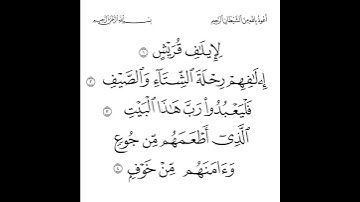 أعوذ بالله من الشيطان الرجيم
بسم الله الرحمن الرحيم
لِإِيلَٰفِ قُرَيْشٍ ١
إِۦلَٰفِهِمْ رِحْلَةَ ٱلشِّتَآءِ وَٱلصَّيْفِ ٢
فَلْيَعْبُدُوا۟ رَبَّ هَٰذَا ٱلْبَيْتِ ٣
ٱلَّذِىٓ أَطْعَمَهُم مِّن جُوعٍ
وَءَامَنَهُم مِّنْ خَوْفٍۭ ٤